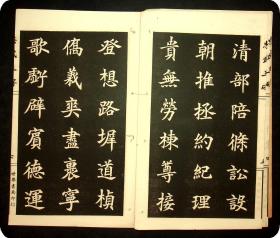 清部陪條訟設
朝推拯約紀理
貴無勞棟接
登想路墀道楨
義奕盡襄寧
歌戲辟賓德運